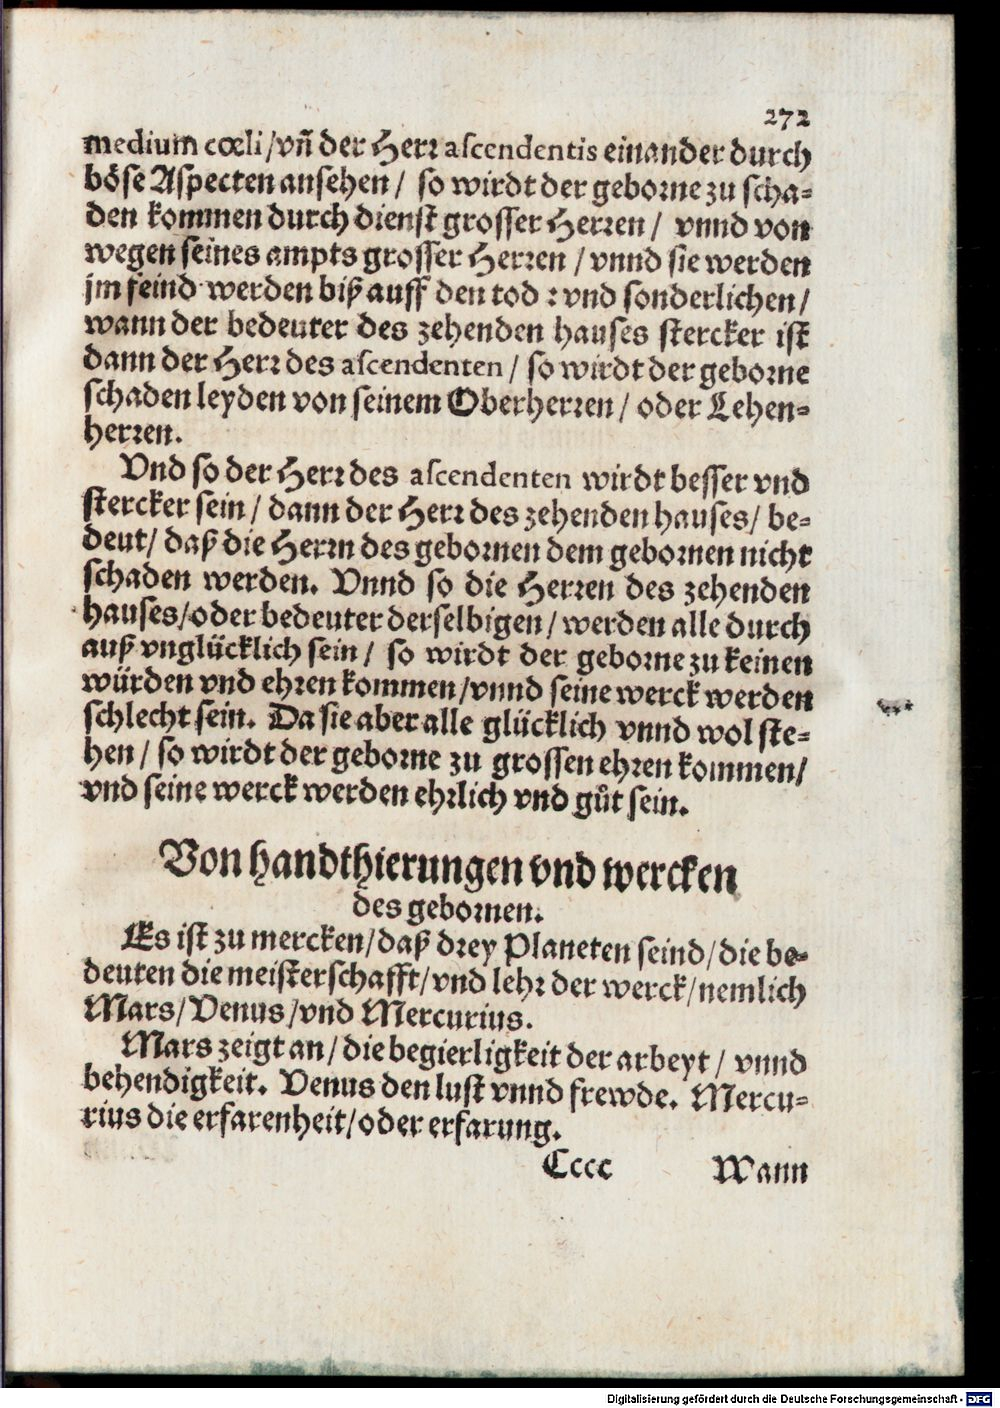 272
medium cœli/vñ der Herr ascendentis einander durch
böse Aspecten ansehen/ so wirdt der geborne zu scha-
den kommen durch dienst grosser Herren/ vnnd von
wegen seines ampts grosser Herren/vnnd sie werden
jm feind werden biß auff den tod: vnd sonderlichen/
wann der bedeuter des zehenden hauses stercker ist
dann der Herr des ascendenten/ so wirdt der geborne
schaden leyden von seinem Oberherren/ oder Lehen-
herren.
Vnd so der Herr des ascendenten wirdt besser vnd
stercker sein/ dann der Herr des zehenden hauses/ be-
deut/ daß die Herrn des gebornen dem gebornen nicht
schaden werden. Vnnd so die Herren des zehenden
hauses/oder bedeuter derselbigen/ werden alle durch
auß vnglücklich sein/ so wirdt der geborne zu keinen
würden vnd ehren kommen/vnnd seine werck werden
schlecht sein. Da sie aber alle glücklich vnnd wol ste-
hen/ so wirdt der geborne zu grossen ehren kommen/
vnd seine werck werden ehrlich vnd gůt sein.
Von handthierungen vnd wercken
des gebornen.
Es ist zu mercken/daß drey Planeten seind/die be-
deuten die meisterschafft/vnd lehr der werck/nemlich
Mars/Venus/vnd Mercurius.
Mars zeigt an/die begierligkeit der arbeyt/ vnnd
behendigkeit. Venus den lust vnnd frewde. Mercu-
rius die erfarenheit/oder erfarung.
Cccc Wann
Digitalisierung gefördert durch die Deutsche Forschungsgemeinschaft - DFG